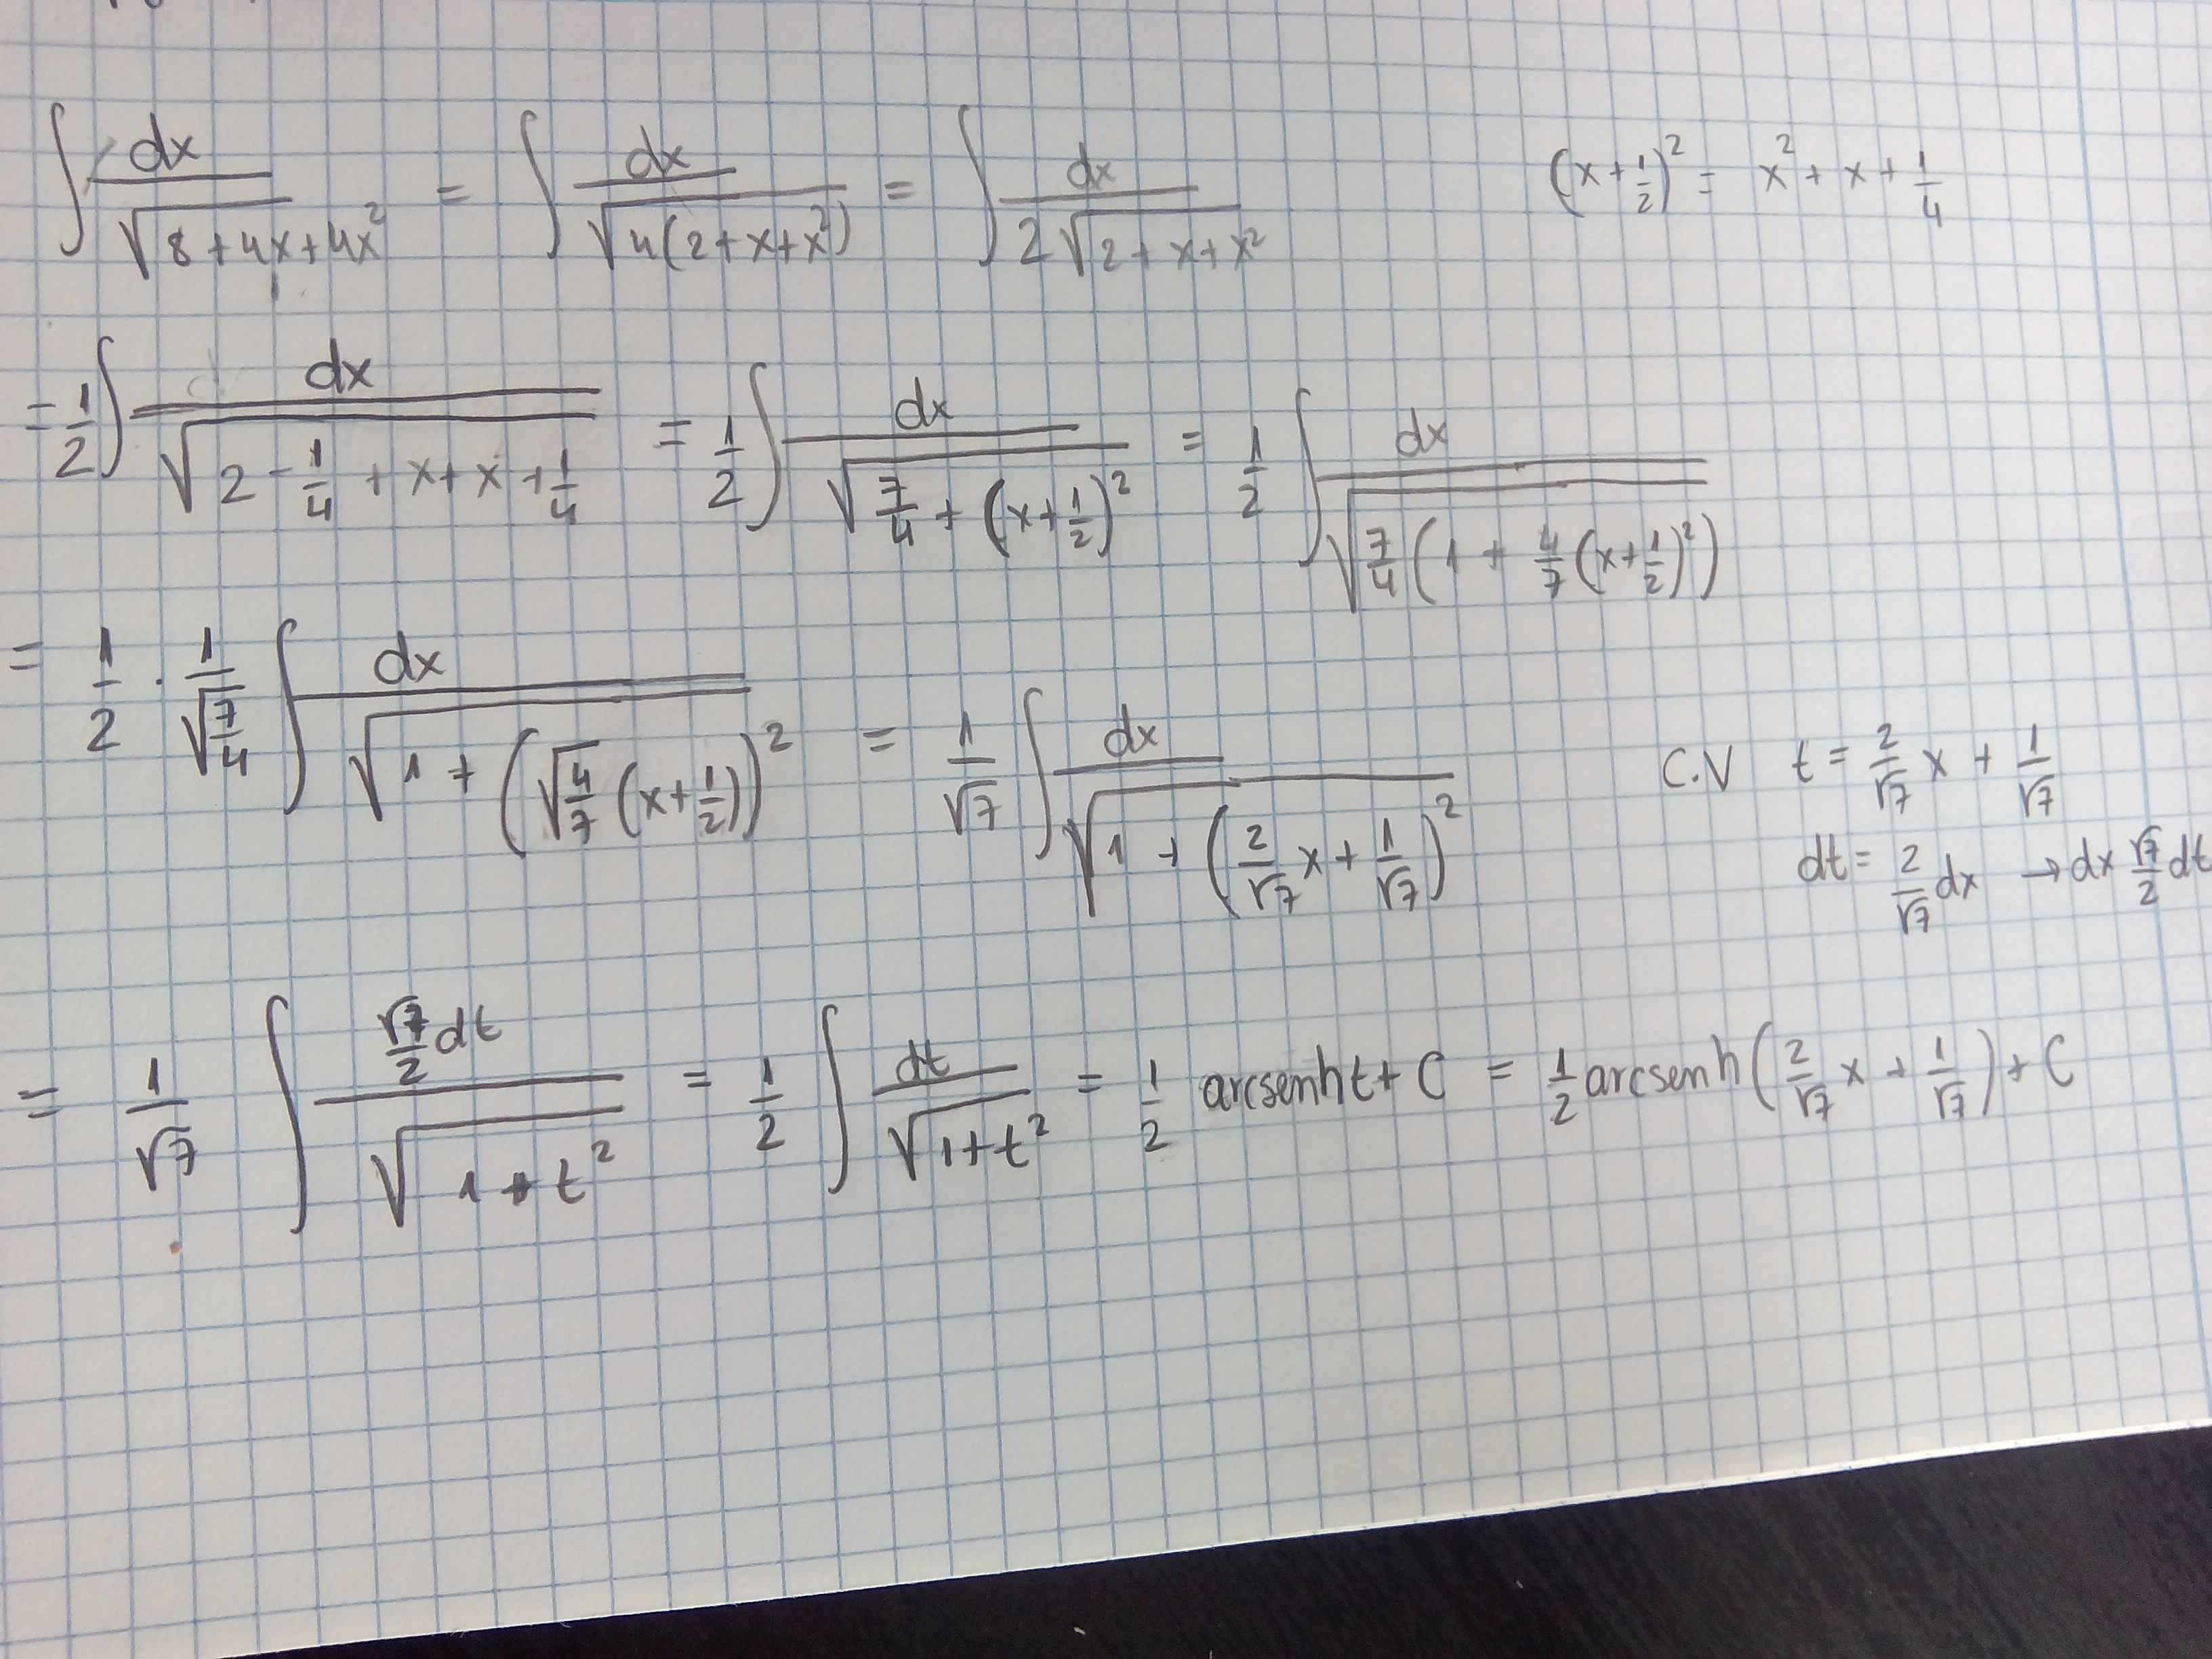 ∫ dx/√(8+4x+4x²) = ∫ dx/√(4(2+x+x²)) = ∫ dx/(2√(2+x+x²))     (x+1/2)² = x² + x + 1/4
= 1/2 ∫ dx/√(2 - 1/4 + x+x + 1/4) = 1/2 ∫ dx/√(7/4 + (x+1/2)²) = 1/2 ∫ dx/√(7/4 (1 + 4/7 (x+1/2)²))
= 1/2 · 1/√(7/4) ∫ dx/√(1 + (√(4/7) (x+1/2))²) = 1/√7 ∫ dx/√(1 + (2/√7 x + 1/√7)²)     C.V t = 2/√7 x + 1/√7
dt = 2/√7 dx → dx √7/2 dt
= 1/√7 ∫ (√7/2 dt)/√(1+t²) = 1/2 ∫ dt/√(1+t²) = 1/2 arcsenh t + C = 1/2 arcsenh(2/√7 x + 1/√7) + C